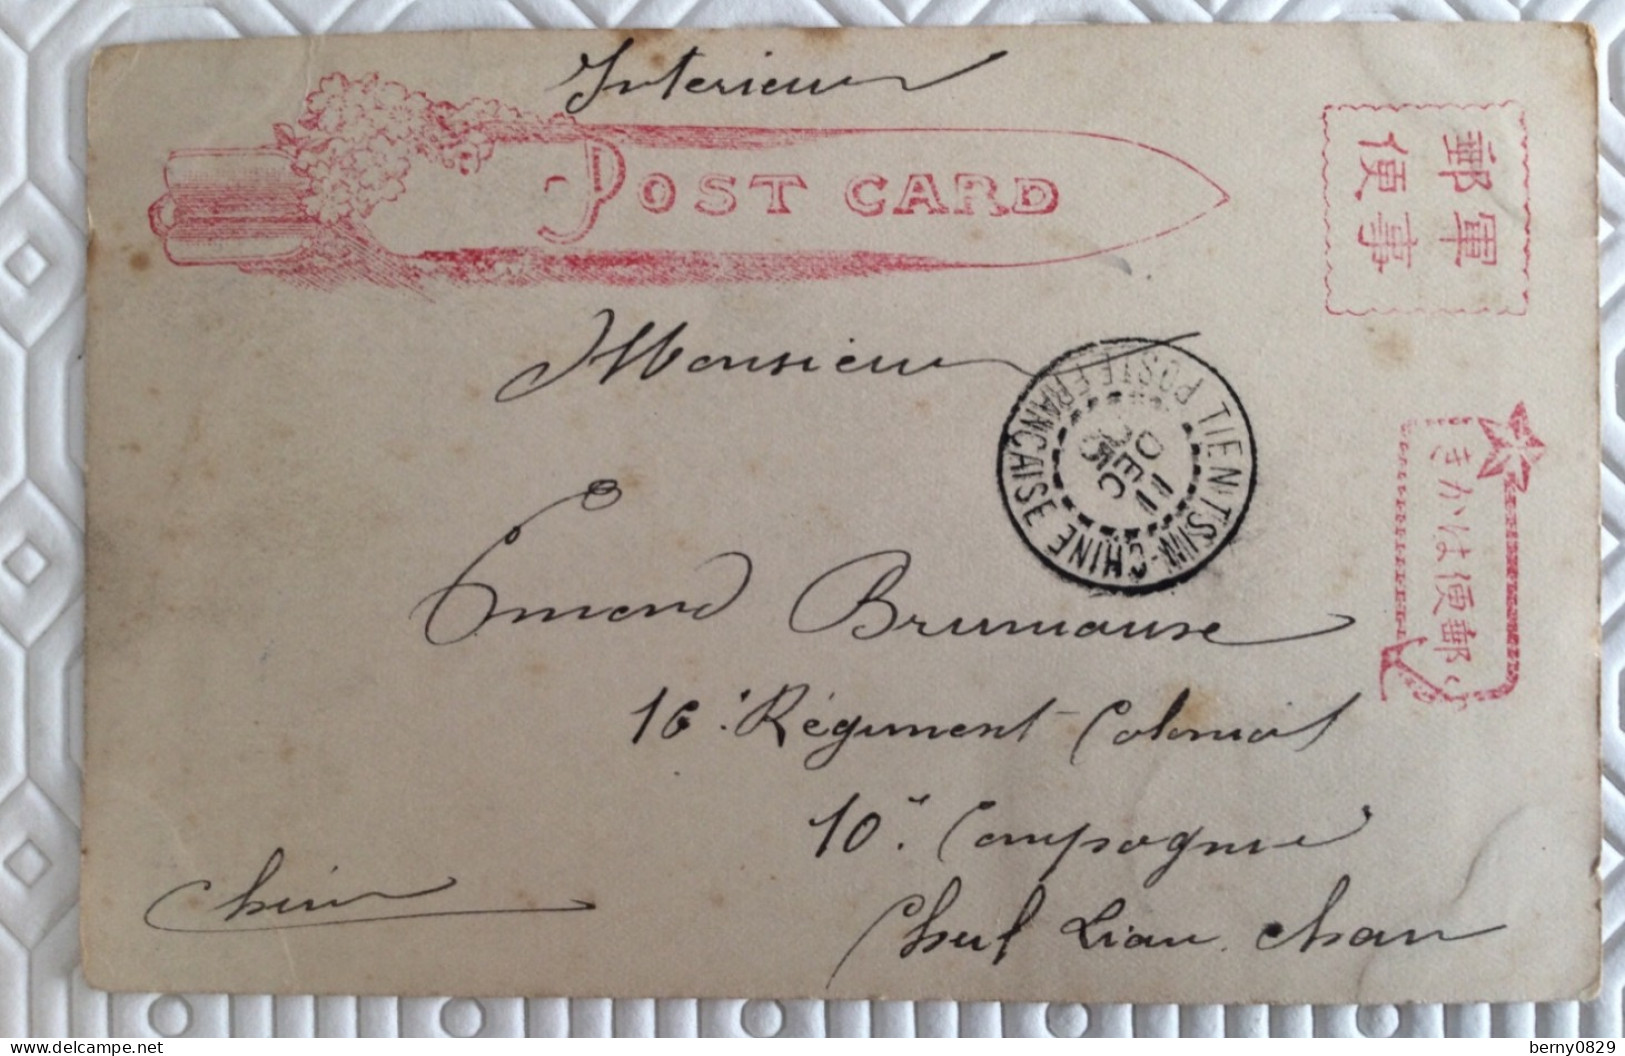 Interieur
POST CARD
軍事
郵便
Monsieur
TIEN-TSIN-CHINE
POSTE FRANÇAISE
11
DEC
05
郵便はかき
Emend
16e Régiment Colonial
10e Compagnie
Chine
Lian chan
https://www.delcampe.net
berny0829